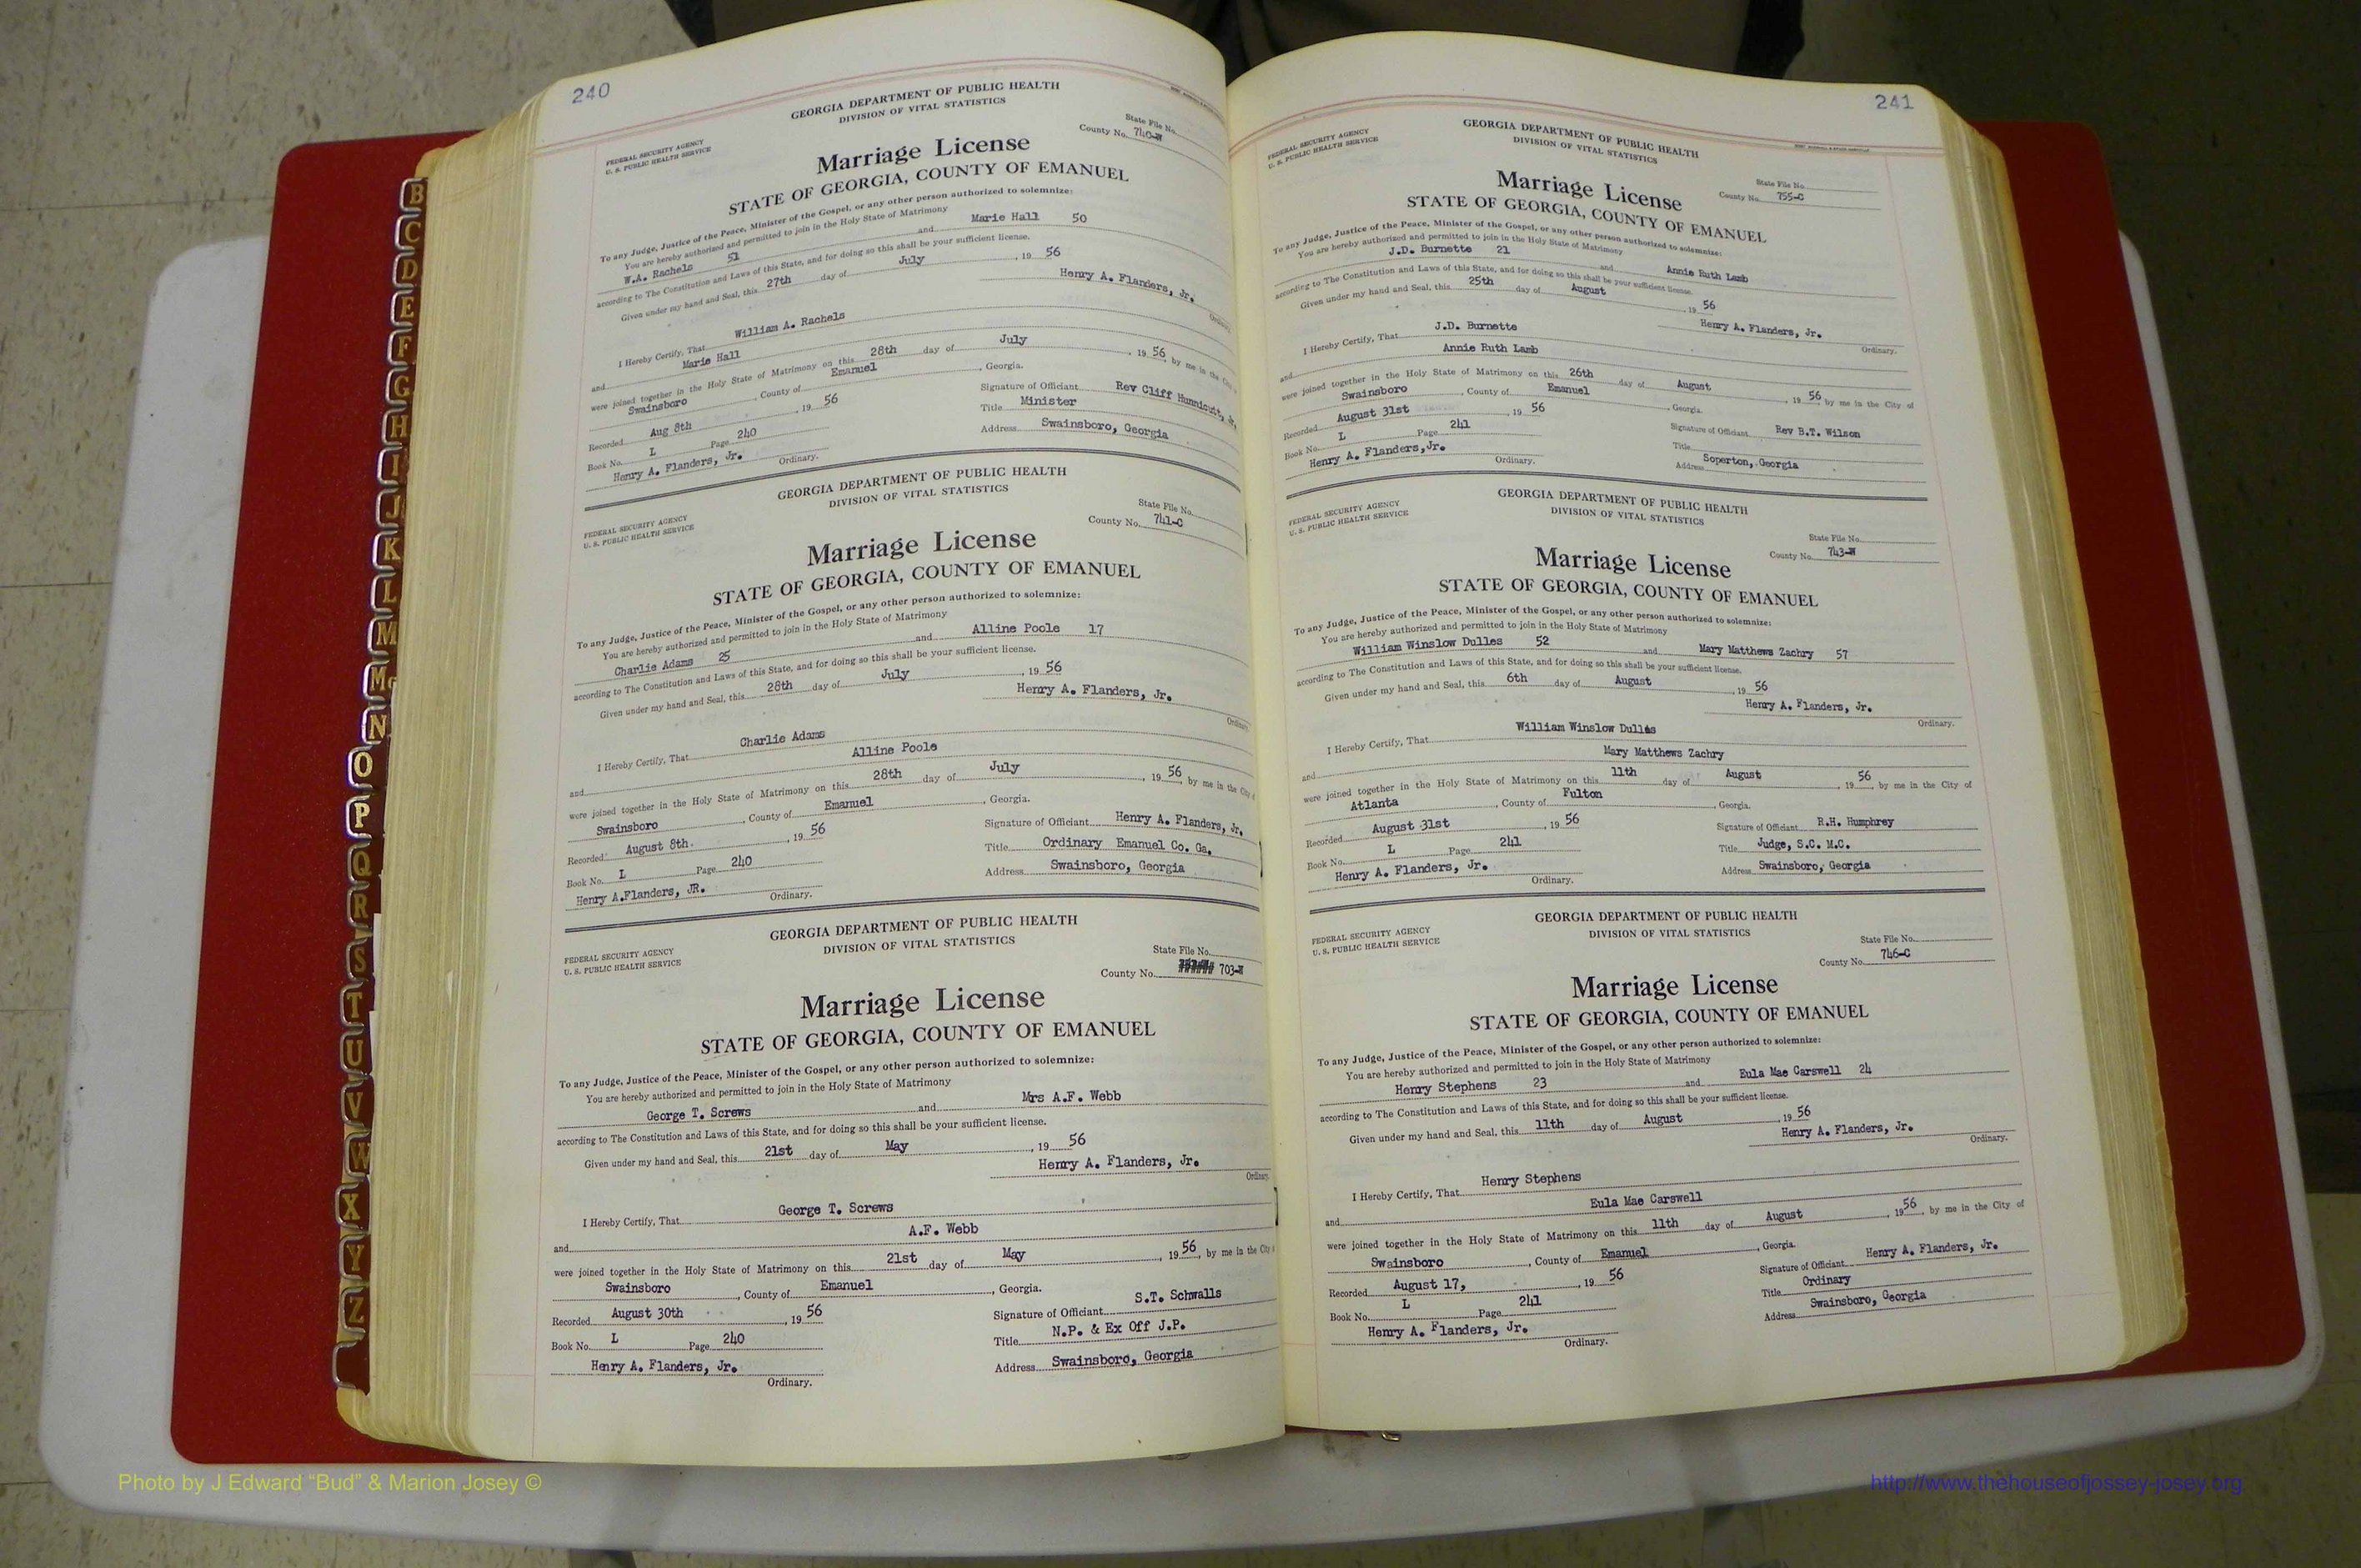 240
GEORGIA DEPARTMENT OF PUBLIC HEALTH
DIVISION OF VITAL STATISTICS
FEDERAL SECURITY AGENCY
U. S. PUBLIC HEALTH SERVICE
State File No.
County No. 740-W
Marriage License
STATE OF GEORGIA, COUNTY OF EMANUEL
To any Judge, Justice of the Peace, Minister of the Gospel, or any other person authorized to solemnize:
You are hereby authorized and permitted to join in the Holy State of Matrimony
W.A. Rachels 51 and Marie Hall 50
according to The Constitution and Laws of this State, and for doing so this shall be your sufficient license.
Given under my hand and Seal, this 27th day of July, 19 56
Henry A. Flanders, Jr.
I Hereby Certify, That William A. Rachels
and Marie Hall
were joined together in the Holy State of Matrimony on this 28th day of July, 19 56, by me in the City
Swainsboro, County of Emanuel, Georgia.
Recorded Aug 8th, 19 56
Signature of Officiant Rev Cliff Hunnicutt, Jr.
Book No. L Page 240
Title Minister
Henry A. Flanders, Jr. Ordinary.
Address Swainsboro, Georgia
GEORGIA DEPARTMENT OF PUBLIC HEALTH
DIVISION OF VITAL STATISTICS
FEDERAL SECURITY AGENCY
U. S. PUBLIC HEALTH SERVICE
State File No.
County No. 741-C
Marriage License
STATE OF GEORGIA, COUNTY OF EMANUEL
To any Judge, Justice of the Peace, Minister of the Gospel, or any other person authorized to solemnize:
You are hereby authorized and permitted to join in the Holy State of Matrimony
Charlie Adams 25 and Alline Poole 17
according to The Constitution and Laws of this State, and for doing so this shall be your sufficient license.
Given under my hand and Seal, this 28th day of July, 19 56
Henry A. Flanders, Jr.
Ordinary
I Hereby Certify, That Charlie Adams
and Alline Poole
were joined together in the Holy State of Matrimony on this 28th day of July, 19 56, by me in the City
Swainsboro, County of Emanuel, Georgia.
Recorded August 8th, 19 56
Signature of Officiant Henry A. Flanders, Jr.
Book No. L Page 240
Title Ordinary Emanuel Co. Ga.
Henry A.Flanders, JR. Ordinary.
Address Swainsboro, Georgia
GEORGIA DEPARTMENT OF PUBLIC HEALTH
DIVISION OF VITAL STATISTICS
FEDERAL SECURITY AGENCY
U. S. PUBLIC HEALTH SERVICE
State File No.
County No. 703-W
Marriage License
STATE OF GEORGIA, COUNTY OF EMANUEL
To any Judge, Justice of the Peace, Minister of the Gospel, or any other person authorized to solemnize:
You are hereby authorized and permitted to join in the Holy State of Matrimony
George T. Screws and Mrs A.F. Webb
according to The Constitution and Laws of this State, and for doing so this shall be your sufficient license.
Given under my hand and Seal, this 21st day of May, 19 56
Henry A. Flanders, Jr.
Ordinary
I Hereby Certify, That George T. Screws
and A.F. Webb
were joined together in the Holy State of Matrimony on this 21st day of May, 19 56, by me in the City
Swainsboro, County of Emanuel, Georgia.
Recorded August 30th, 19 56
Signature of Officiant S.T. Schwalls
Book No. L Page 240
Title N.P. & Ex Off J.P.
Henry A. Flanders, Jr.
Ordinary.
Address Swainsboro, Georgia
241
GEORGIA DEPARTMENT OF PUBLIC HEALTH
DIVISION OF VITAL STATISTICS
FEDERAL SECURITY AGENCY
U. S. PUBLIC HEALTH SERVICE
State File No.
County No. 755-C
Marriage License
STATE OF GEORGIA, COUNTY OF EMANUEL
To any Judge, Justice of the Peace, Minister of the Gospel, or any other person authorized to solemnize:
You are hereby authorized and permitted to join in the Holy State of Matrimony
J.D. Burnette 21 and Annie Ruth Lamb
according to The Constitution and Laws of this State, and for doing so this shall be your sufficient license.
Given under my hand and Seal, this 25th day of August, 19 56
Henry A. Flanders, Jr.
Ordinary.
I Hereby Certify, That J.D. Burnette
and Annie Ruth Lamb
were joined together in the Holy State of Matrimony on this 26th day of August, 19 56 by me in the City of
Swainsboro, County of Emanuel, Georgia.
Recorded August 31st, 19 56
Signature of Officiant Rev B.T. Wilson
Book No. L Page 241
Title
Henry A. Flanders,Jr.
Ordinary.
Address Soperton, Georgia
GEORGIA DEPARTMENT OF PUBLIC HEALTH
DIVISION OF VITAL STATISTICS
FEDERAL SECURITY AGENCY
U. S. PUBLIC HEALTH SERVICE
State File No.
County No. 743-W
Marriage License
STATE OF GEORGIA, COUNTY OF EMANUEL
To any Judge, Justice of the Peace, Minister of the Gospel, or any other person authorized to solemnize:
You are hereby authorized and permitted to join in the Holy State of Matrimony
William Winslow Dulles 52 and Mary Matthews Zachry 57
according to The Constitution and Laws of this State, and for doing so this shall be your sufficient license.
Given under my hand and Seal, this 6th day of August, 19 56
Henry A. Flanders, Jr.
Ordinary.
I Hereby Certify, That William Winslow Dulles
and Mary Matthews Zachry
were joined together in the Holy State of Matrimony on this 11th day of August, 19 56, by me in the City of
Atlanta, County of Fulton, Georgia.
Recorded August 31st, 19 56
Signature of Officiant R.H. Humphrey
Book No. L Page 241
Title Judge, S.C. M.C.
Henry A. Flanders, Jr.
Ordinary.
Address Swainsboro, Georgia
GEORGIA DEPARTMENT OF PUBLIC HEALTH
DIVISION OF VITAL STATISTICS
FEDERAL SECURITY AGENCY
U. S. PUBLIC HEALTH SERVICE
State File No.
County No. 746-C
Marriage License
STATE OF GEORGIA, COUNTY OF EMANUEL
To any Judge, Justice of the Peace, Minister of the Gospel, or any other person authorized to solemnize:
You are hereby authorized and permitted to join in the Holy State of Matrimony
Henry Stephens 23 and Eula Mae Carswell 24
according to The Constitution and Laws of this State, and for doing so this shall be your sufficient license.
Given under my hand and Seal, this 11th day of August, 19 56
Henry A. Flanders, Jr.
Ordinary.
I Hereby Certify, That Henry Stephens
and Eula Mae Carswell
were joined together in the Holy State of Matrimony on this 11th day of August, 19 56, by me in the City of
Swainsboro, County of Emanuel, Georgia.
Recorded August 17, 19 56
Signature of Officiant Henry A. Flanders, Jr.
Book No. L Page 241
Title Ordinary
Henry A. Flanders, Jr.
Ordinary.
Address Swainsboro, Georgia
B
C
D
E
F
G
H
I
J
K
L
M
Mc
N
O
P
Q
R
S
T
U
V
W
X
Y
Z
Photo by J Edward “Bud” & Marion Josey ©
http://www.thehouseofjossey-josey.org